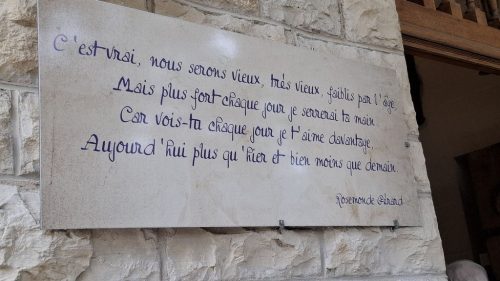 C'est vrai, nous serons vieux, très vieux, faiblis par l'âge,
Mais plus fort chaque jour je serrerai ta main
Car vois-tu chaque jour je t'aime davantage,
Aujourd'hui plus qu'hier et bien moins que demain.
Rosemonde Gérard